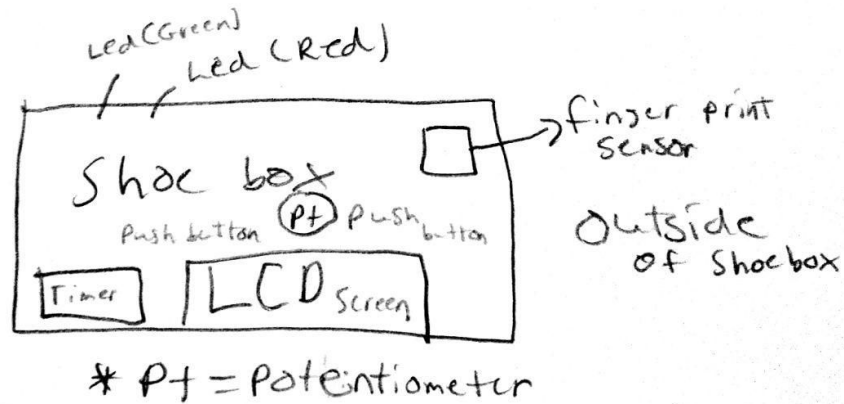 Led (Green)
Led (Red)
finger print
sensor
Shoe box
Pt
Push button
Push
button
Outside
of Shoebox
Timer
LCD Screen
* Pt = Potentiometer